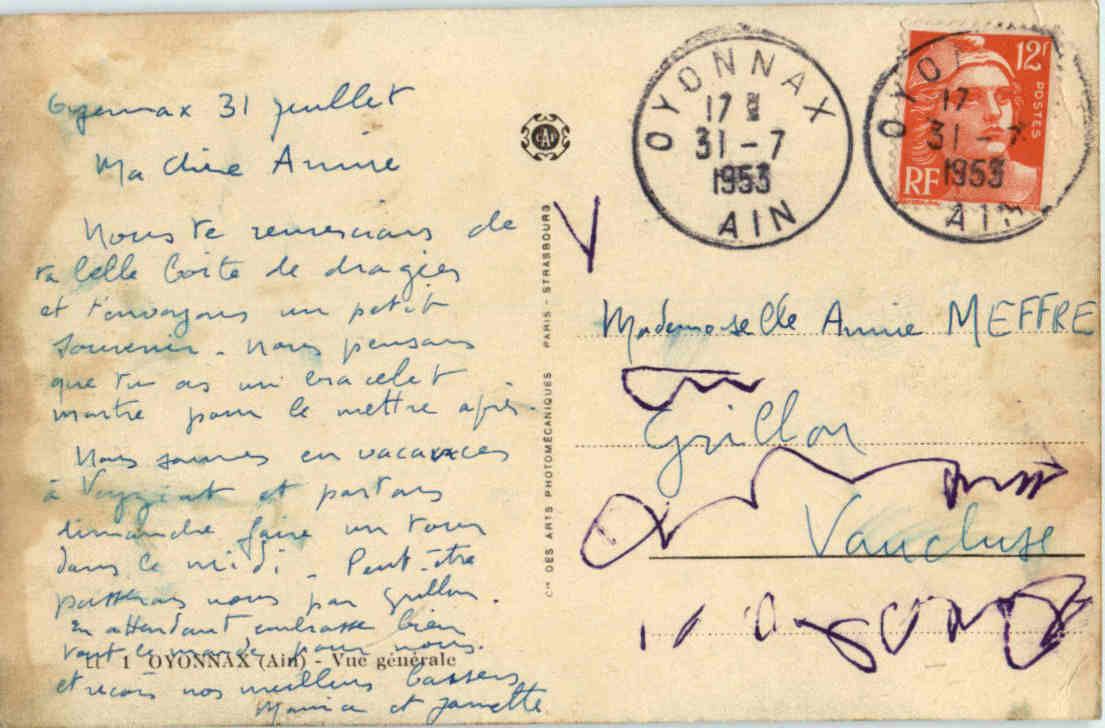 Oyonnax 31 juillet
Ma chère Annie
Nous te remercions de
ta belle boite de dragées
et t'envoyons un petit
souvenir. Nous pensons
que tu as un bracelet
montre pour le mettre après.
Nous sommes en vacances
à Veyziat et partons
dimanche faire un tour
dans le midi. Peut-être
passerons nous par Grillon.
En attendant, embrasse bien
tout le monde pour nous.
et reçois nos meilleurs baisers
Maurice et Jannette
11 1 OYONNAX (Ain) - Vue générale
CAP
Cie DES ARTS PHOTOMÉCANIQUES PARIS - STRASBOURG
OYONNAX
17 H
31 - 7
1953
AIN
12F
POSTES
RF
OYO
17
31 - 7
1953
AIN
Mademoiselle Annie MEFFRE
Grillon
Vaucluse